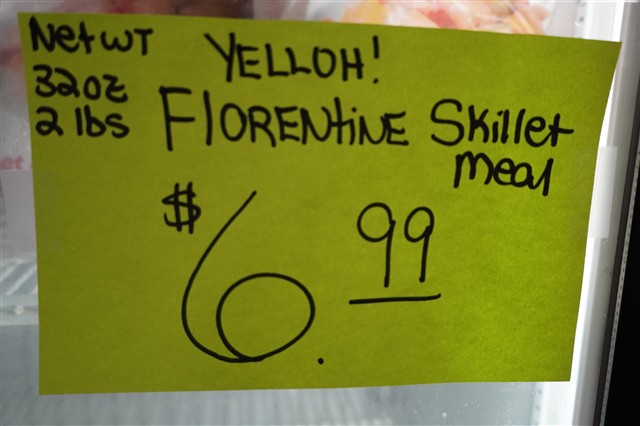 Net WT
32oz
2 lbs
YELLOH!
FlORENTiNE Skillet
Meal
$6.99